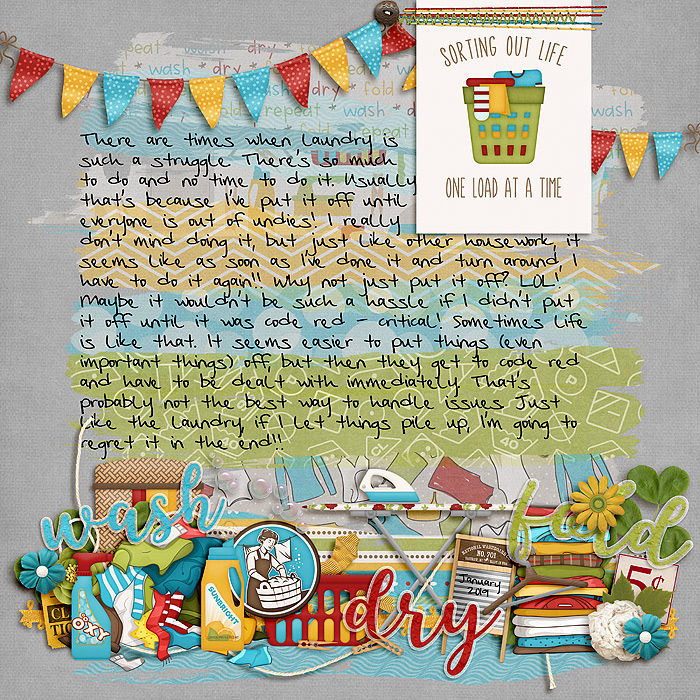 SORTING OUT LIFE
ONE LOAD AT A TIME
There are times when laundry is
such a struggle. There's so much
to do and no time to do it. Usually
that's because I've put it off until
everyone is out of undies! I really
don't mind doing it, but just like other housework, it
seems like as soon as I've done it and turn around, I
have to do it again!! Why not just put it off? LOL!
Maybe it wouldn't be such a hassle if I didn't put
it off until it was code red - critical! Sometimes life
is like that. It seems easier to put things (even
important things) off, but then they get to code red
and have to be dealt with immediately. That's
probably not the best way to handle issues. Just
like the laundry, if I let things pile up, I'm going to
regret it in the end!!
wash
fold
dry
NO. 701
January
2019
5¢